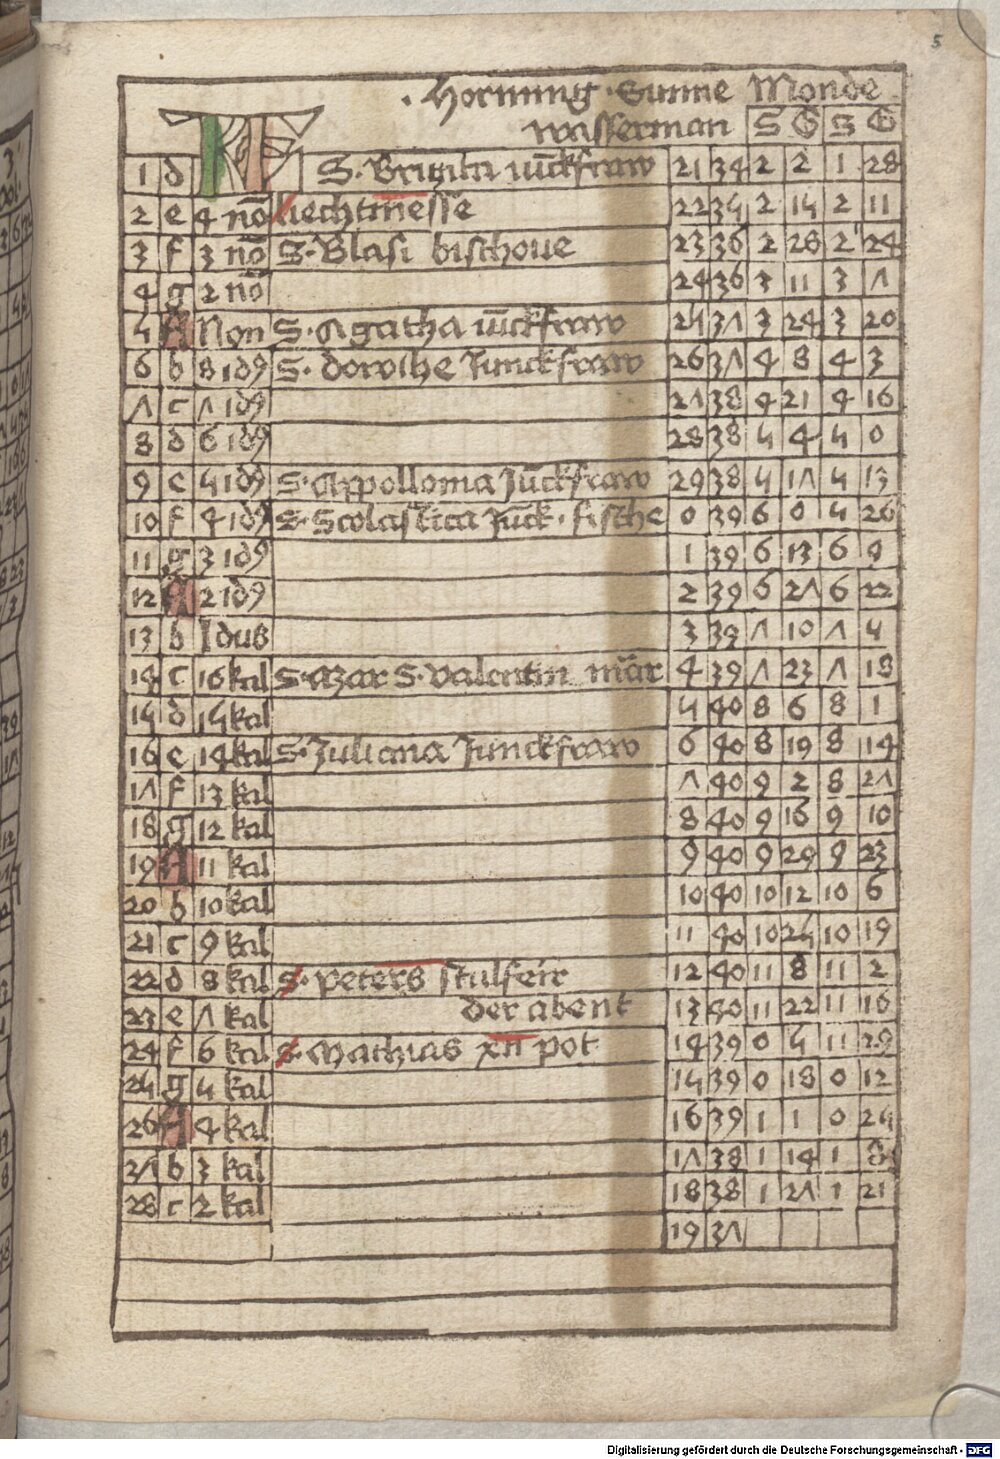 5
Hornung Sunne Monde
wasserman S G S G
KL
1 d S. Brigita iūckfraw 21 34 2 2 1 28
2 e 4 nō liechtmesse 22 34 2 14 2 11
3 f 3 nō S. Blasi bischoue 23 36 2 28 2 24
4 g 2 nō 24 36 3 11 3 Λ
4 A Non S. Agatha iūckfraw 24 3Λ 3 24 3 20
6 b 8 idꝰ S. dorothe Junckfraw 26 3Λ 4 8 4 3
Λ c Λ idꝰ 2Λ 38 4 21 4 16
8 d 6 idꝰ 28 38 4 4 4 0
9 e 4 idꝰ S. Appollonia Jūckfraw 29 38 4 1Λ 4 13
10 f 4 idꝰ S. Scolastica Jūck. fische 0 39 6 0 4 26
11 g 3 idꝰ 1 39 6 13 6 9
12 A 2 idꝰ 2 39 6 2Λ 6 22
13 b Idus 3 39 Λ 10 Λ 4
14 c 16 kal S. Azar S. Valentin mār 4 39 Λ 23 Λ 18
14 d 14 kal 4 40 8 6 8 1
16 e 14 kal S. Juliana Junckfraw 6 40 8 19 8 14
1Λ f 13 kal Λ 40 9 2 8 2Λ
18 g 12 kal 8 40 9 16 9 10
19 A 11 kal 9 40 9 29 9 23
20 b 10 kal 10 40 10 12 10 6
21 c 9 kal 11 40 10 24 10 19
22 d 8 kal S. peters stulfeir 12 40 11 8 11 2
23 e Λ kal der abent 13 40 11 22 11 16
24 f 6 kal S. Mathias xii pot 14 39 0 4 11 29
24 g 4 kal 14 39 0 18 0 12
26 A 4 kal 16 39 1 1 0 24
2Λ b 3 kal 1Λ 38 1 14 1 8
28 c 2 kal 18 38 1 2Λ 1 21
19 3Λ
Digitalisierung gefördert durch die Deutsche Forschungsgemeinschaft - DFG